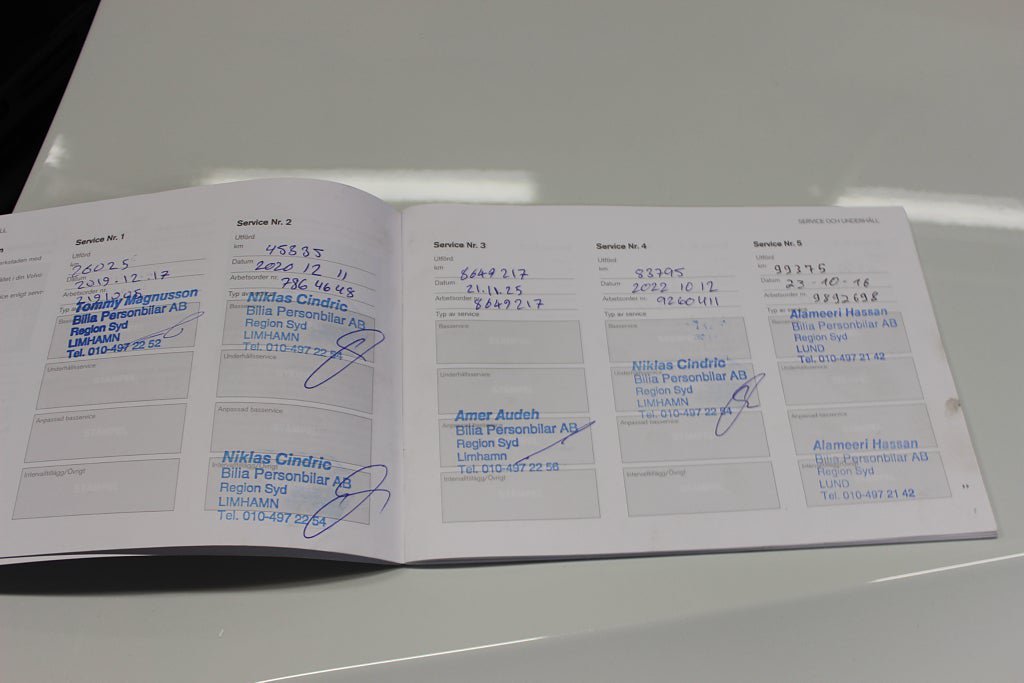 LL
Service Nr. 1
Utförd
km 26025
Datum 2019.12.17
Arbetsorder nr.
Tommy Magnusson
Bilia Personbilar AB
Region Syd
LIMHAMN
Tel. 010-497 22 52
Underhållsservice
Anpassad basservice
Intervalltillägg/Övrigt
Service Nr. 2
Utförd
km 45835
Datum 2020 12 11
Arbetsorder nr. 7864648
Niklas Cindric
Bilia Personbilar AB
Region Syd
LIMHAMN
Tel. 010-497 22 54
Underhållsservice
Anpassad basservice
Niklas Cindric
Bilia Personbilar AB
Region Syd
LIMHAMN
Tel. 010-497 22 54
SERVICE OCH UNDERHÅLL
Service Nr. 3
Utförd
km 8649217
Datum 21.11.25
Arbetsorder nr. 8649217
Typ av service
Basservice
Underhållsservice
Amer Audeh
Bilia Personbilar AB
Region Syd
Limhamn
Tel. 010-497 22 56
Intervalltillägg/Övrigt
Service Nr. 4
Utförd
km 83795
Datum 2022 10 12
Arbetsorder nr. 9260411
Typ av service
Basservice
Niklas Cindric
Bilia Personbilar AB
Region Syd
LIMHAMN
Tel. 010-497 22 54
Anpassad basservice
Intervalltillägg/Övrigt
Service Nr. 5
Utförd
km 99375
Datum 23-10-16
Arbetsorder nr. 9892698
Typ av service
Alameeri Hassan
Bilia Personbilar AB
Region Syd
LUND
Tel. 010-497 21 42
Underhållsservice
Anpassad basservice
Alameeri Hassan
Bilia Personbilar AB
Region Syd
LUND
Tel. 010-497 21 42